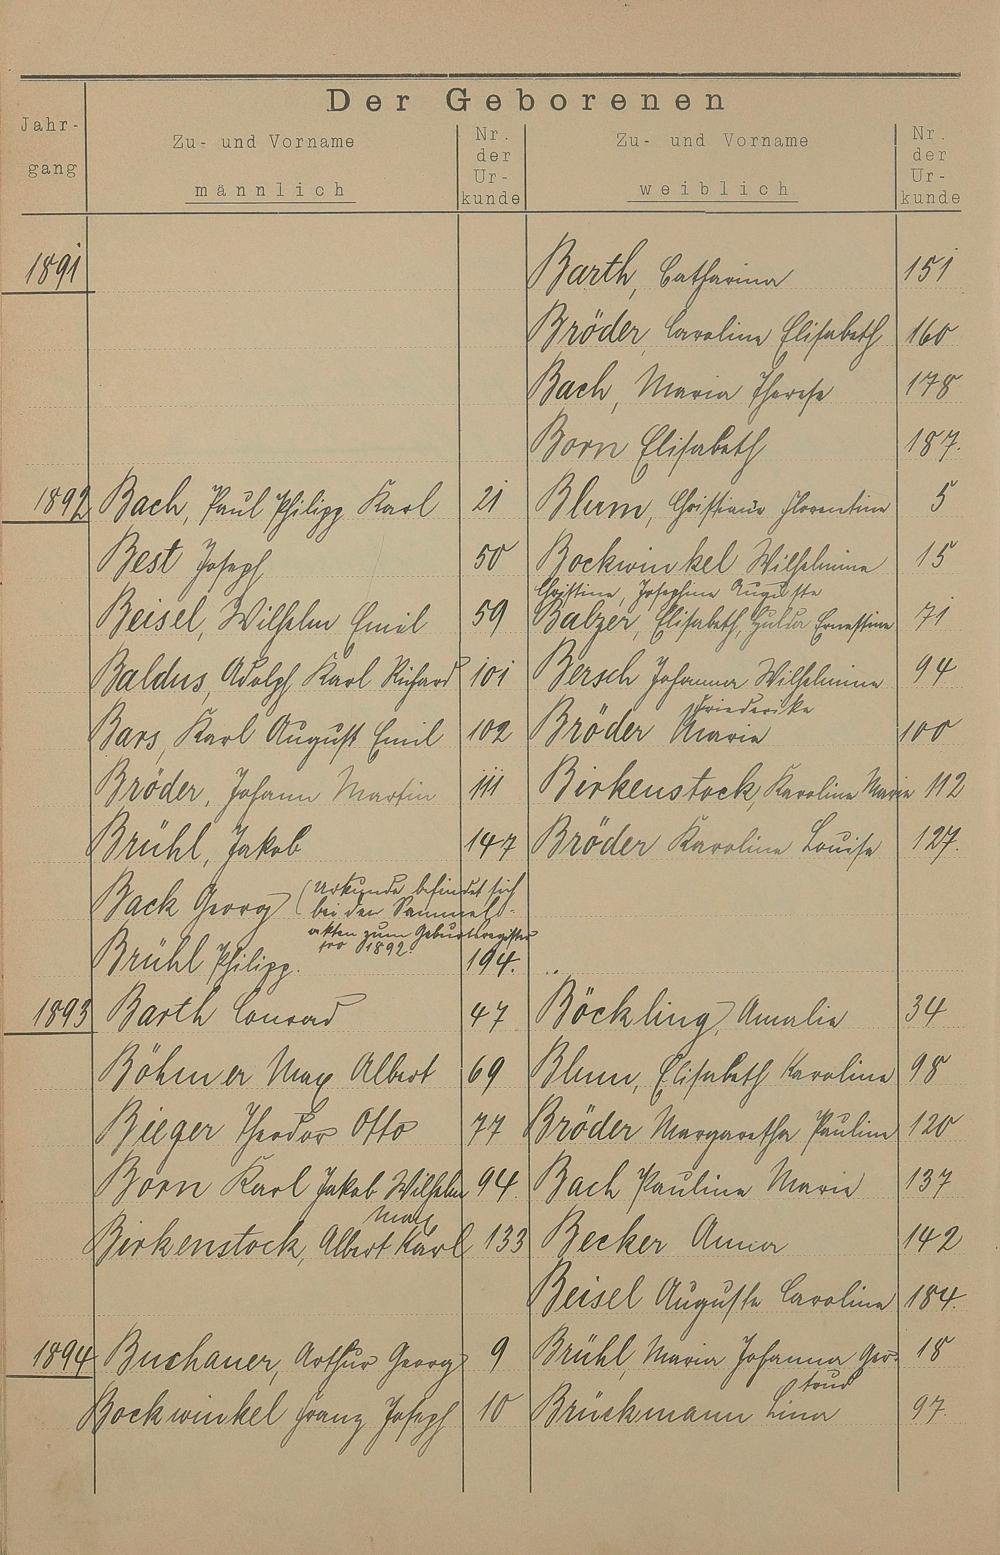 Der Geborenen
Jahr-
gang
Zu- und Vorname
männlich
Nr.
der
Ur-
kunde
Zu- und Vorname
weiblich
Nr.
der
Ur-
kunde
1891 Barth, Catharina 151
Bröder, Caroline Elisabeth 160
Bach, Maria Therese 178
Born Elisabeth 187.
1892 Bach, Paul Philipp Karl 21 Blum, Christiane Florentine 5
Best Joseph 50 Bockwinkel Wilhelmine 15
Christine, Josephine Auguste
Beisel, Wilhelm Emil 59 Balzer, Elisabeth, Hulda Ernestine 71
Baldus, Adolph Karl Richard 101 Bersch Johanna Wilhelmine 94
Friederike
Bars, Karl August Emil 102 Bröder Marie 100
Bröder, Johann Martin 111 Birkenstock, Karoline Marie 112
Brühl, Jakob 147 Bröder Karoline Louise 127.
Back Georg (Urkunde befindet sich
bei den Sammel-
akten zum Geburtsregister
pro 1892.
Brühl Philipp. 194.
1893 Barth Conrad 47 Böckling, Amalie 34
Böhmer Max Albert 69 Blum, Elisabeth Karoline 98
Bieger Theodor Otto 77 Bröder Margaretha Pauline 120
Born Karl Jakob Wilhelm 94 Bach Pauline Marie 137
Max
Birkenstock, Albert Karl 133 Becker Anna 142
Beisel Auguste Caroline 184.
1894 Buchauer, Arthur Georg 9 Brühl, Maria Johanna Ger- 18
trud
Bockwinkel Franz Joseph 10 Brückmann Lina 97.